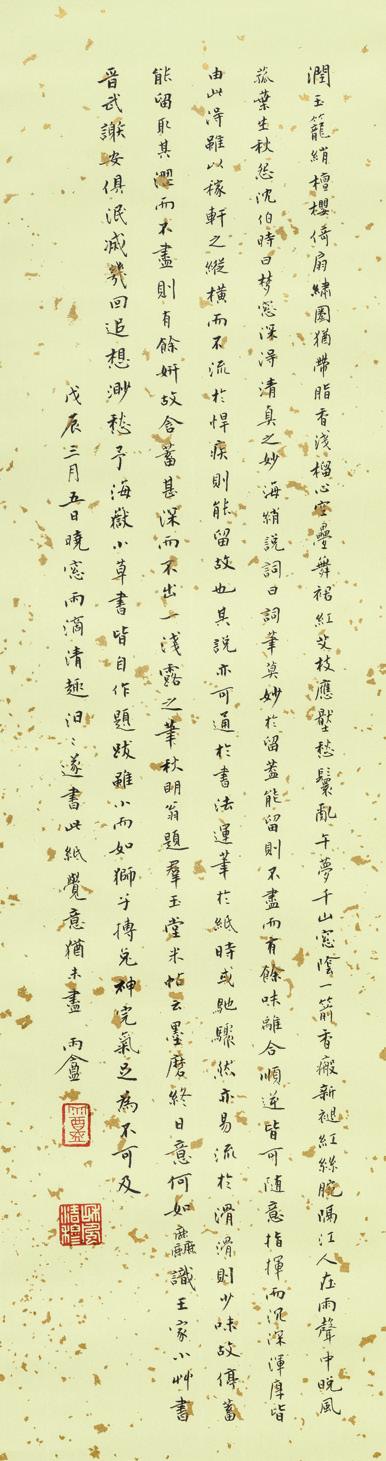 潤玉籠綃檀櫻倚扇繡圈猶帶脂香淺榴心空疊舞裙紅艾枝應壓愁鬟亂午夢千山窓陰一箭香瘢新褪紅絲腕隔江人在雨聲中晚風
菰葉生秋怨沈伯時曰夢窓深得清真之妙海綃說詞曰詞筆莫妙於留蓋能留則不盡而有餘味離合順逆皆可隨意指揮而沉深渾厚皆
由此得雖以稼軒之縱橫而不流於悍疾則能留故也其說亦可通於書法運筆於紙時或馳驟然亦易流於滑滑則少味故停蓄
能留取其澀而不盡則有餘妍故含蓄甚深而不出一淺露之筆秋明翁題羣玉堂米帖云墨磨終日意何如麤識王家小艸書
晉武謝安俱泯滅幾回追想渺愁予海嶽小草書皆自作題跋雖小而如獅子搏兔神完氣足為不可及
戊辰三月五日曉窓雨滴清趣汩〻遂書此紙覺意猶未盡 雨盦